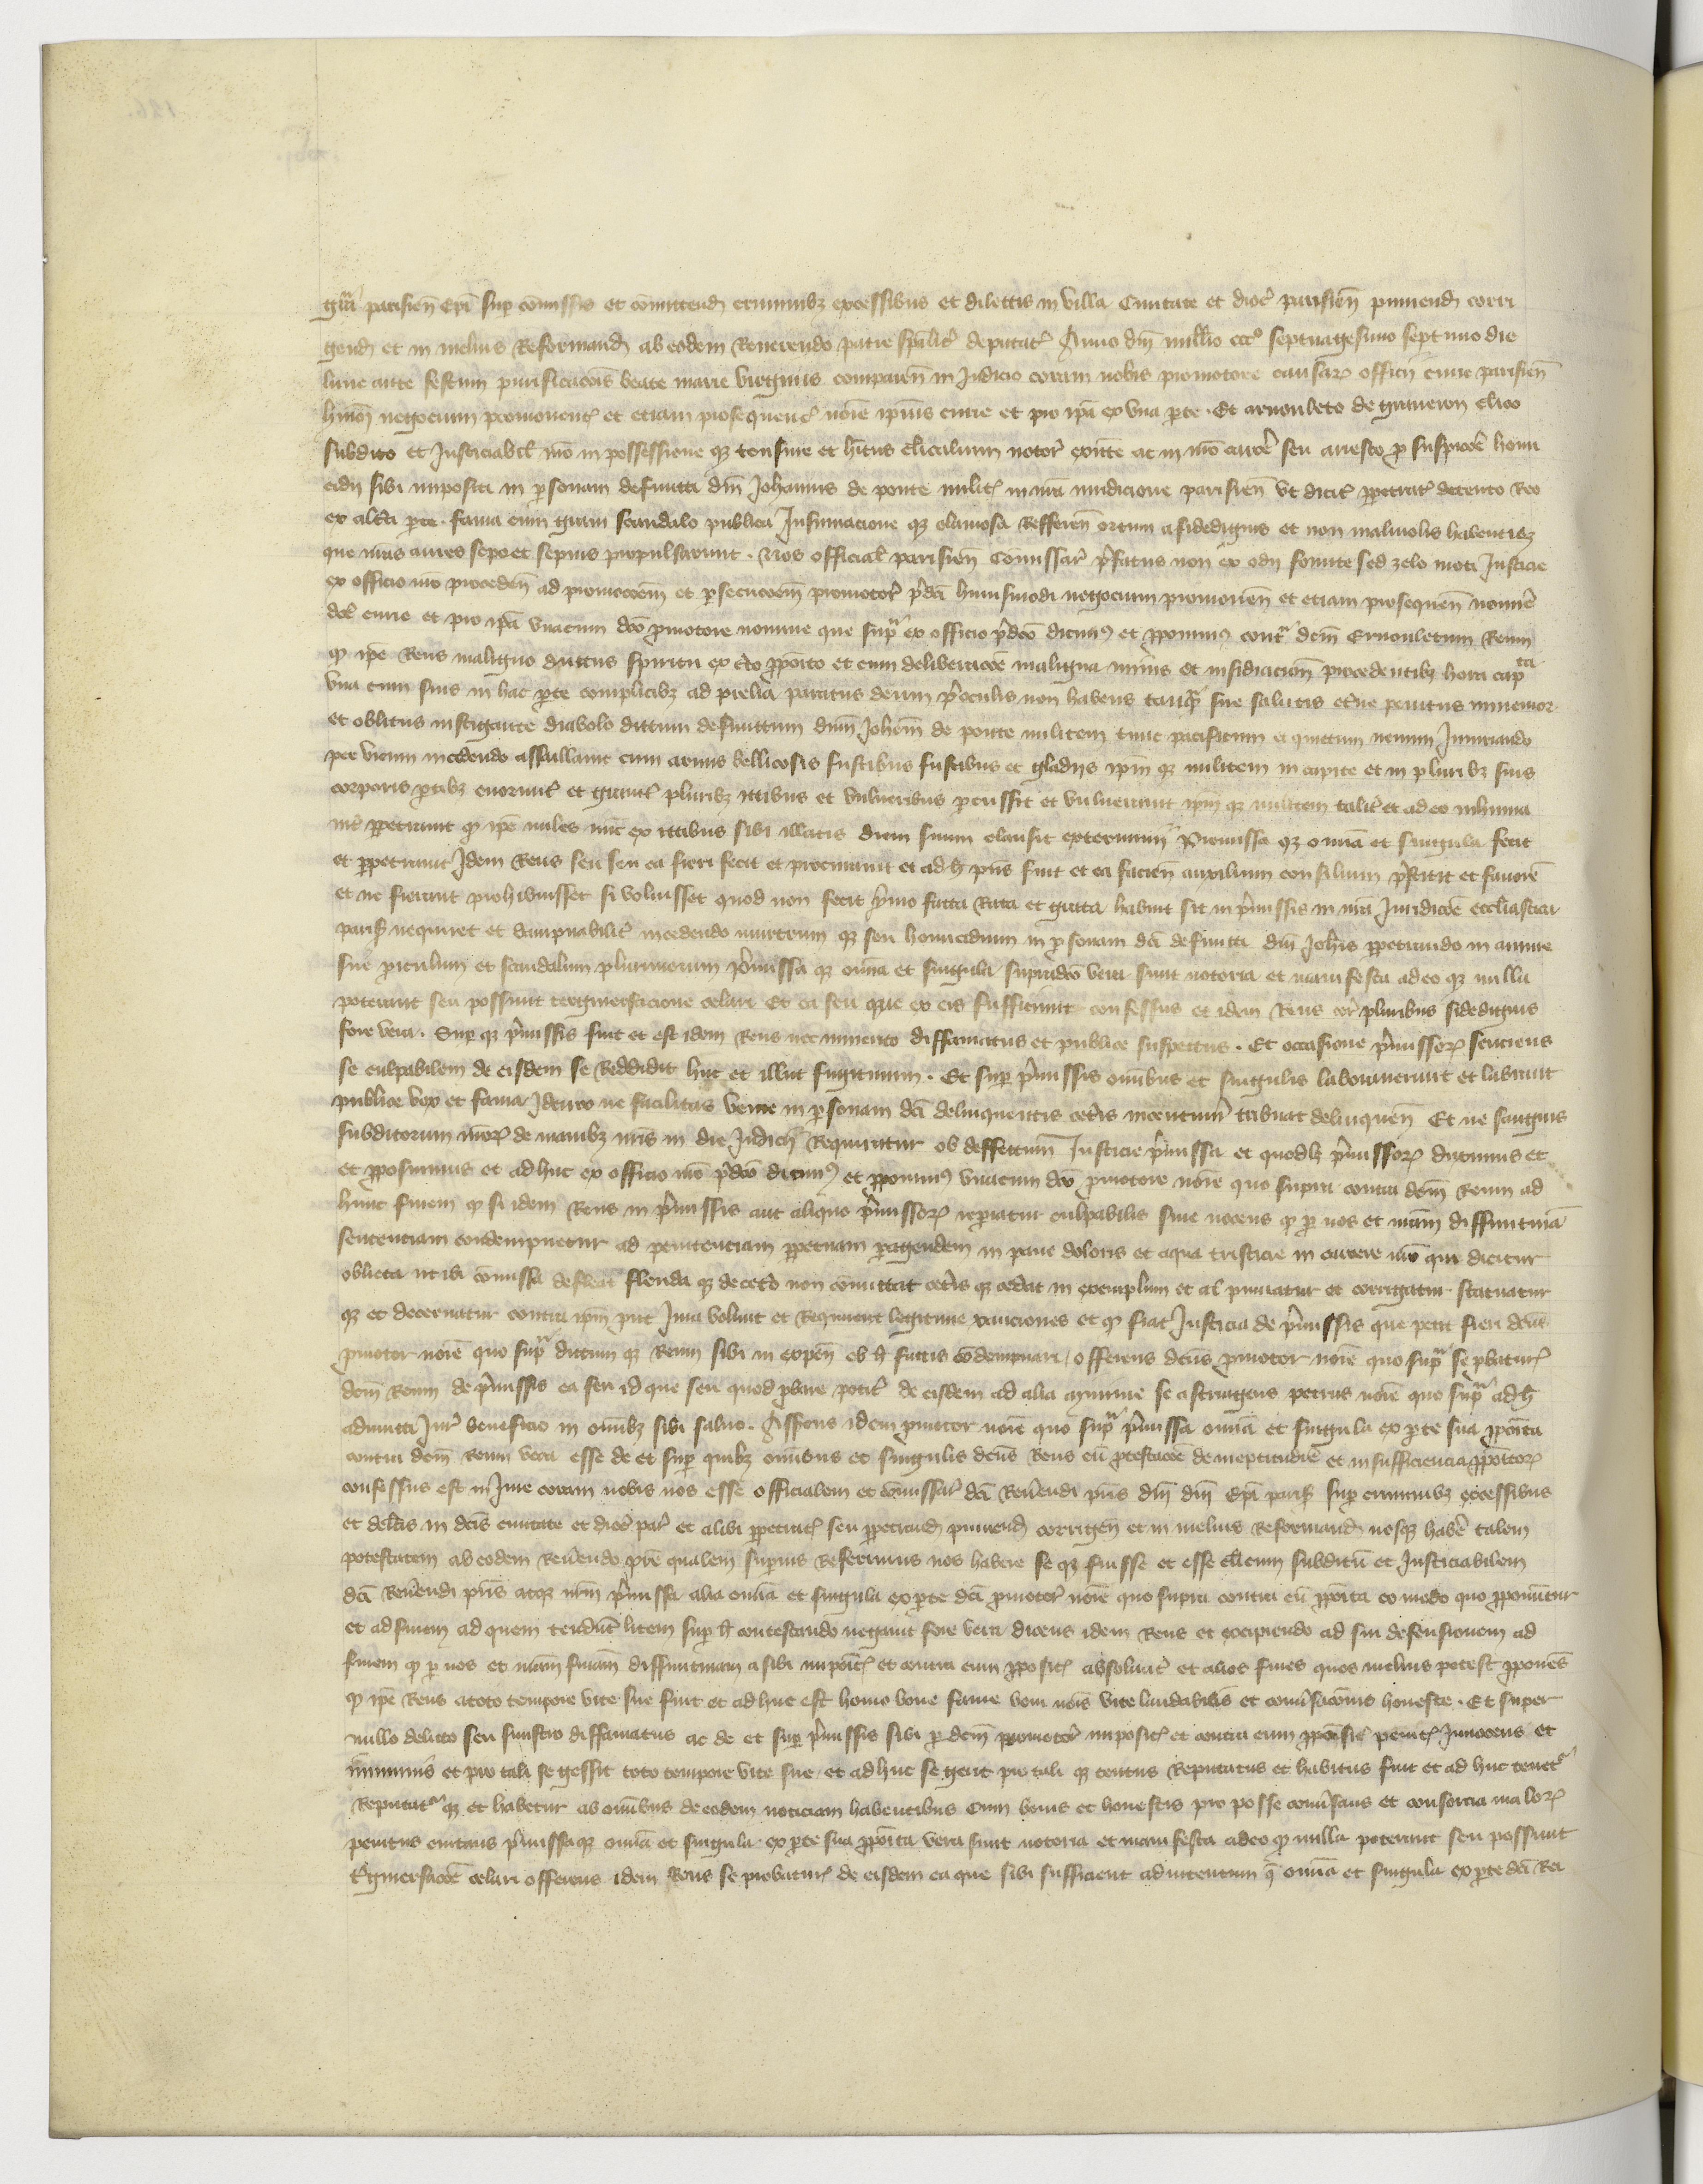 grā parisien̄ Ep̄i sup̱ cōmissis et cōmittend̄ criminibꝫ excessibus et delictis in villa Ciuitate et dioc̄ parisien̄ puniend̄ corri
gend̄ et in melius Reformand̄ ab eodem Reuerendo patre spāliť deputať Anno dn̄i mill̄io cccº septuagesimo septimo die
lune ante festum purificacōis beate marie virginis comparen̄ in Judicio coram nobis promotore causaꝝ officij curie parisien̄
hm̄oi negocium promouent̄ et etiam prosequent̄ noīe ip̄ius curie et pro ip̄a ex vna ꝑte. Et arnouleto de clico
subdito et Justiciabil̄ nr̄o in possessione qꝫ tonsure et hītus cl̄icalium notor̄ exn̄te ac in nr̄o carcē seu aresto ꝑ suspicōē homi
cidij sibi impositi in ꝑsonam defuncti dn̄i Johannis de ponte milit̄ in nr̄a iurisdicione parisien̄ vt diciť ꝑpetrať detento Reo
ex alťa ꝑte. fama enim scandalo publica Insinuacione qꝫ clamosa Refferen̄ ortum a fidedignis et non maliuolis habentibꝫ
que nr̄as aures sepe et sepius propulsarunt. Nos official̄ parisien̄ Cōmissar̄ p̄fatus non ex odij fomite sed zelo moti Justicie
ex officio nr̄o proceden̄ ad promocōem et ꝑsecucōem promotor̄ p̄dc̄i huiusmodi negocium promouen̄ et etiam prosequen̄ nomīe
dc̄e curie et pro ip̄a vnacum dc̄o ꝓmotore nomine quo sup̱ᵃ ex officio p̄dc̄o dicimꝰ et ꝓponimꝰ contᵃ dc̄m Ernouletum Reum
ꝙ ip̄e Reus maligno ductus spiritu ex cťo ꝓpoīto et cum deliberacōe maligna minis et insidiacion̄ precedentibꝫ hora captata
vna cum suis in hac ꝑte complicibꝫ ad prelia paratus deum p̄ oculis non habens tanꝙᵃ sue salutis eťne penitus inmemor
et oblitus instigante diabolo dictum defunctum dn̄m Joh̄em de ponte militem tunc pacificum et quietum nemini Iniuriando
per vicum incedendo assalliuit cum armis bellicosis fustibus fustibus et gladijs ip̄m qꝫ militem in capite et in pluribꝫ suis
corporis ꝑtibꝫ enormiť et grauiť pluribꝫ ictibus et vulneribus ꝑcussit et vulnerauit ip̄m qꝫ militem taliť et adeo inhuma
niť ꝑpetrauit ꝙ ip̄e miles nūc ex ictibus sibi illatis diem suum clausit extremum Premissa qꝫ omīa et singula fecit
et ꝑpetrauit Idem Reus seu ea fieri fecit et procurauit et ad h̄ pn̄s fuit et ea facien̄ auxilium consilium p̄stitit et fauorē
et ne fierent prohibuisset si voluisset quod non fecit ymo facta Rata et grata habuit sit in p̄missis in nr̄a Jurisdicōe eccl̄iastica
paris̄ nequiter et dampnabiliť incedendo murtrum qꝫ seu homicidium in ꝑsonam dc̄i defuncti dn̄i Joh̄is ꝑpetrando in anime
sue ꝑiculum et scandalum plurimorum p̄missa qꝫ omīa et singula supradc̄a vera sunt notoria et manifesta adeo qꝫ nulla
poterunt seu possunt tergiuersacione celari Et ea seu que ex eis sufficiunt confessus est idem Reus cor̄ pluribus fidedignis
fore vera. Sup̱ qꝫ p̄missis fuit et est idem Reus nec inmerito diffamatus et publice suspectus. Et occasione p̄missoꝝ senciens
se culpabilem de eisdem se Reddidit huc et illuc fugitiuum. Et sup̱ p̄missis omībus et singulis laborauerunt et laborant
publice vox et fama Idcirco ne facilitas venie in ꝑsonam dc̄i delinquentis ceťis incentiuū tribuat delinquen̄ Et ne sanguis
subditorum nr̄oꝝ de manibꝫ nr̄is in die Judicij Requiratur ob deffectum Justicie p̄missa et quodlꝫ p̄missoꝝ dicimus et
et ꝓposuimus et adhuc ex officio nr̄o p̄dc̄o dicimꝰ et ꝓponimꝰ vnacum dc̄o ꝓmotore noīe quo supra contra dc̄m Reum ad
hunc finem ꝙ si idem Reus in p̄missis aut aliquo p̄missoꝝ reꝑiatur culpabilis siue nocens ꝙ ꝑ nos et nr̄am diffinitiuā
sentenciam condempnetur ad penitenciam ꝑpetuam ꝑagendam in pane doloris et aqua tristicie in carcere nr̄o qui dicitur
oblieta ut ibi cōmissa defleat flenda qꝫ de ceťo non cōmittat ceťis qꝫ cedat in exemplum et al̄ puniatur et corrigatur statuatur
qꝫ et decernatur contra ip̄m put Jura volunt et Requirunt legitime xanciones et ꝙ fiat Justicia de p̄missis que petit fieri dc̄us
ꝓmotor noīe quo sup̱ᵃ dictum qꝫ Reum sibi in expen̄ ob h̄ factis cōdempnari, offerens dc̄us ꝓmotor noīe quo sup̱ᵃ se ꝓbatur̄
dc̄m Reum de p̄missis ea seu id que seu quod ꝓbare poťit de eisdem ad alia minime se astringens petens noīe quo sup̱ᵃ ad h̄
admitti Jur̄ beneficio in omībꝫ sibi saluo. Asserens idem ꝓmotor noīe quo sup̱ᵃ p̄missa omīa et singula ex ꝑte sua ꝓpoīta
contra dc̄m Reum vera esse de et sup̱ quibꝫ omībus et singulis dc̄us Reus cū ꝓtestacōe de ineptitudīe et insufficiencia ꝓpoītoꝝ
confessus est in Jure coram nobis nos esse officialem et cōmissar̄ dc̄i Reūendi pr̄is dn̄i dn̄i Ep̄i paris̄ sup̱ criminibꝫ excessibus
et del̄cis in dc̄is ciuitate et dioc̄ par̄ et alibi ꝑpetrat̄ seu ꝑpetrand̄ puniend̄ corrigen̄ et in melius Reformand̄ nosqꝫ habē talem
potestatem ab eodem Reūendo pr̄e qualem suꝑius Referimus nos habere se qꝫ fuisse et esse cl̄icum subditū et Justiciabilem
dc̄i Reūendi pr̄is atqꝫ nr̄m p̄missa alia omīa et singula ex ꝑte dc̄i ꝓmotor̄ noīe quo supra contra eū ꝓpoīta eo modo quo ꝓponūtur
et ad finem ad quem tendūt litem sup̱ h̄ contestando negauit fore vera dicens idem Reus et excipiendo ad sui defensionem ad
finem ꝙ ꝑ nos et nr̄am sniam̄ diffinitiuam a sibi impoīt̄ et contra eum ꝓposit̄ absoluať et alios fines quos melius potest ꝓponēs
ꝙ ip̄e Reus a toto tempore vite sue fuit et adhuc est homo bone fame boni noīs vite laudabilis et conūsacōnis honeste. Et super
nullo delicto seu sinistro diffamatus ac de et sup̱ p̄missis sibi ꝑ dc̄m promotor̄ imposit̄ et contra eum ꝓposit̄ penit̄ Innocens et
inmunis et pro tali se gessit toto tempore vite sue et adhuc se gerit pro tali qꝫ tentus Reputatus et habitus fuit et ad huc tenetᵘʳ
Reputatᵘʳ qꝫ et habetur ab omībus de eodem noticiam habentibus Cum bonis et honestis pro posse conūsans et consorcia maloꝝ
penitus euitans p̄missaqꝫ omīa et singula ex ꝑte sua ꝓpoīta vera sunt notoria et manifesta adeo ꝙ nulla poterunt seu possunt
ťgiuersacōe celari offerens idem Reus se probatur̄ de eisdem ea que sibi sufficient ad intentum ꝗ̄ omīa et singula ex ꝑte dc̄i Rei